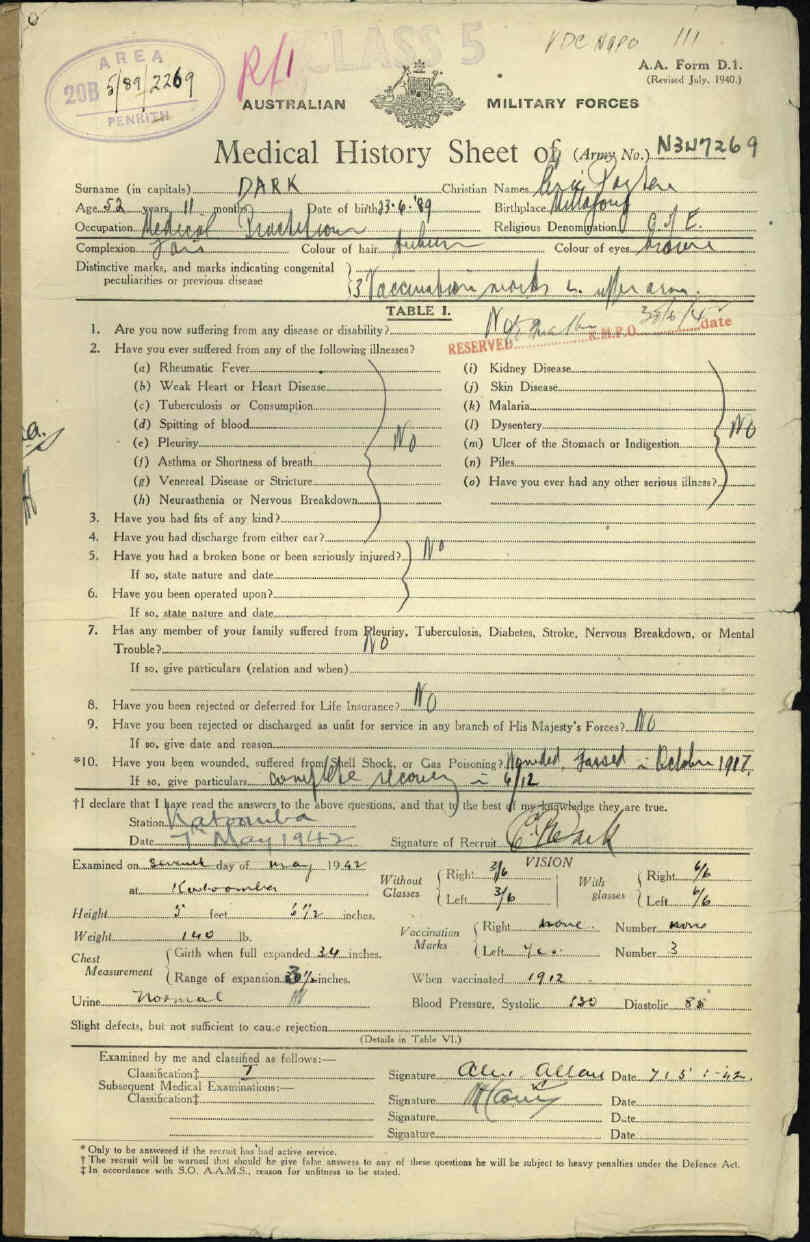 CLASS 5
VDC NGPO III
A.A. Form D.1.
(Revised July, 1940.)
AREA
20B 5/89/2269
PENRITH
AUSTRALIAN MILITARY FORCES
Medical History Sheet of (Army No.) N347269
Surname (in capitals) DARK Christian Names Eric Payten
Age 52 years 11 months Date of birth 23.6.'89 Birthplace Mittagong
Occupation Medical Practitioner Religious Denomination C of E.
Complexion Fair Colour of hair Auburn Colour of eyes brown
Distinctive marks, and marks indicating congenital
peculiarities or previous disease
3 Vaccination marks L. upper arm.
TABLE I.
1. Are you now suffering from any disease or disability? No
RESERVED R.M.P.O. date
2. Have you ever suffered from any of the following illnesses?
(a) Rheumatic Fever
(b) Weak Heart or Heart Disease
(c) Tuberculosis or Consumption
(d) Spitting of blood
(e) Pleurisy No
(f) Asthma or Shortness of breath
(g) Venereal Disease or Stricture
(h) Neurasthenia or Nervous Breakdown
(i) Kidney Disease
(j) Skin Disease
(k) Malaria
(l) Dysentery No
(m) Ulcer of the Stomach or Indigestion
(n) Piles
(o) Have you ever had any other serious illness?
3. Have you had fits of any kind?
4. Have you had discharge from either ear?
5. Have you had a broken bone or been seriously injured? No
If so, state nature and date
6. Have you been operated upon?
If so, state nature and date
7. Has any member of your family suffered from Pleurisy, Tuberculosis, Diabetes, Stroke, Nervous Breakdown, or Mental
Trouble? No
If so, give particulars (relation and when)
8. Have you been rejected or deferred for Life Insurance? No
9. Have you been rejected or discharged as unfit for service in any branch of His Majesty's Forces? No
If so, give date and reason
*10. Have you been wounded, suffered from Shell Shock, or Gas Poisoning? Wounded, Gassed in October 1917,
If so, give particulars complete recovery in 6/12
†I declare that I have read the answers to the above questions, and that to the best of my knowledge they are true.
Station Katoomba
Date 7th May 1942 Signature of Recruit E P Dark
Examined on seventh day of May 1942
at Katoomba
Height 5 feet 6½ inches.
Weight 140 lb.
Chest Measurement
Girth when full expanded 34 inches.
Range of expansion 3½ inches.
Urine Normal
VISION
Without Glasses Right 3/6 Left 3/6
With glasses Right 6/6 Left 6/6
Vaccination Marks Right none. Number none
Left yes. Number 3
When vaccinated 1912
Blood Pressure, Systolic 130 Diastolic 85
Slight defects, but not sufficient to cause rejection
(Details in Table VI.)
Examined by me and classified as follows:—
Classification‡ I Signature Alex. Allan Date 7.5.42.
Subsequent Medical Examinations:—
Classification‡ Signature Date
Signature Date
Signature Date
* Only to be answered if the recruit has had active service.
† The recruit will be warned that should he give false answers to any of these questions he will be subject to heavy penalties under the Defence Act.
‡ In accordance with S.O. A.A.M.S., reason for unfitness to be stated.